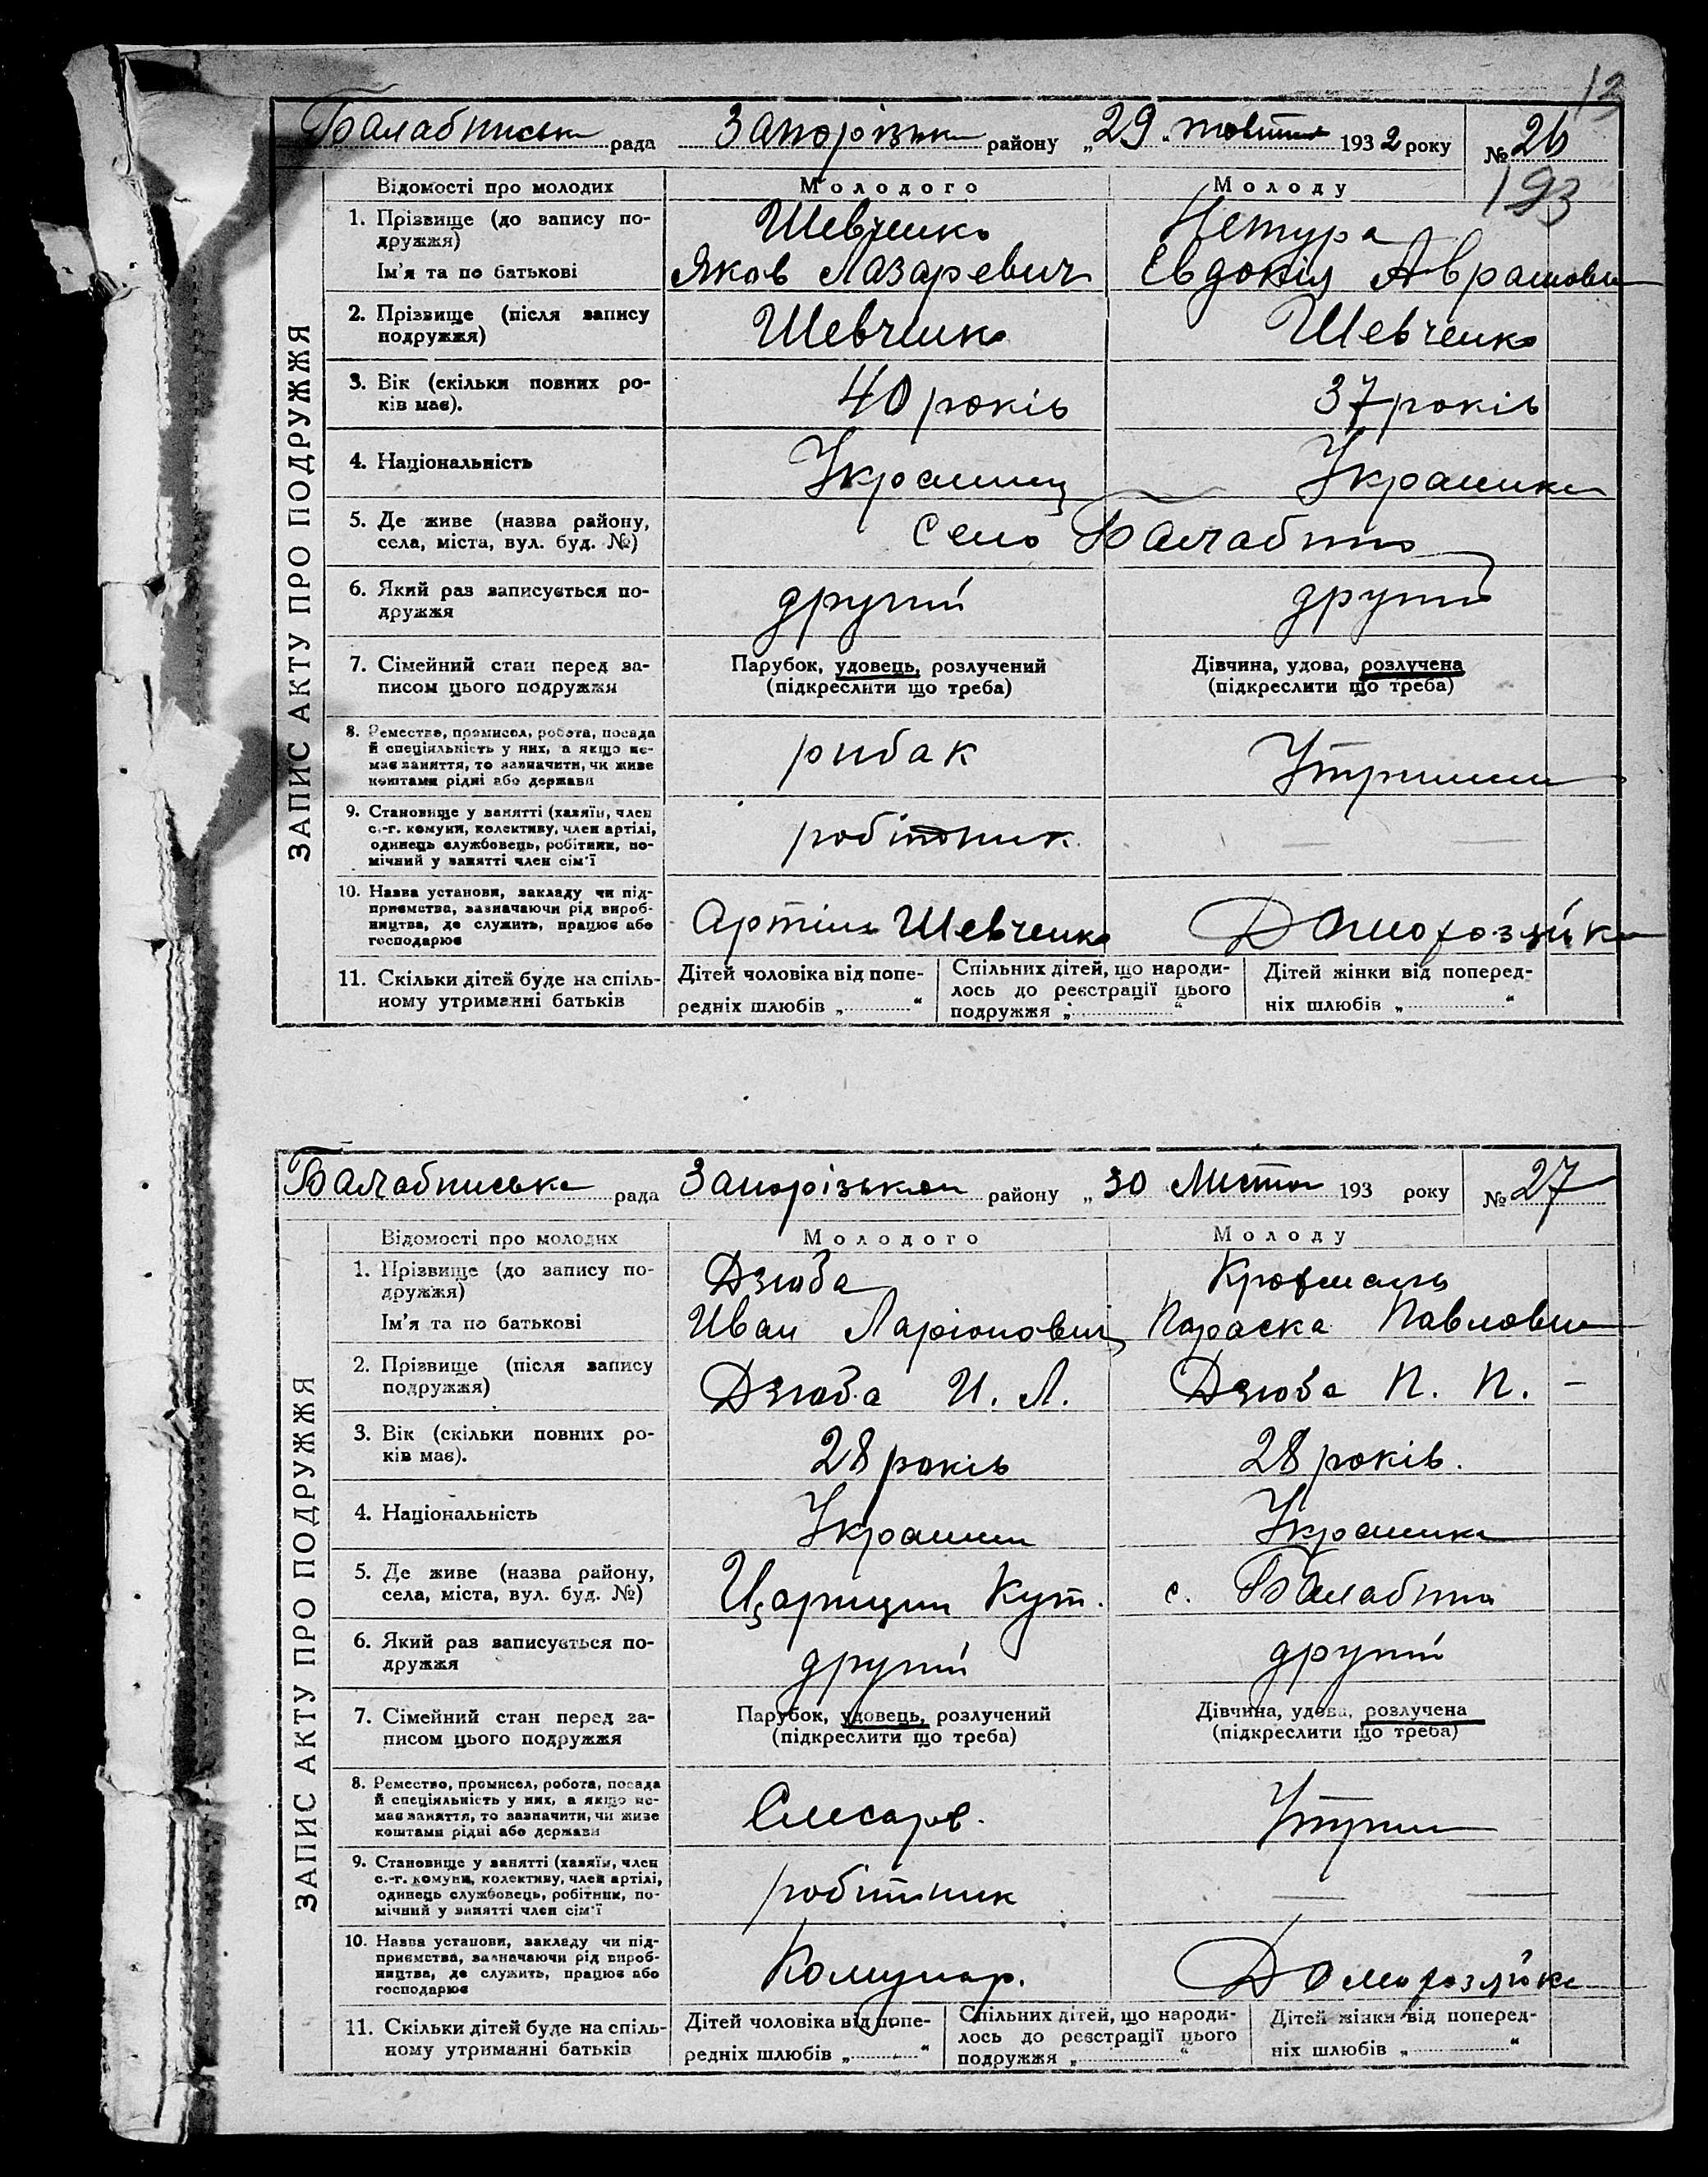 12
Балабинська рада Запорізьк району „29“ жовтня 1932 року № 26
193
ЗАПИС АКТУ ПРО ПОДРУЖЖЯ
Відомості про молодих Молодого Молоду
1. Прізвище (до запису по- Шевченко Нетура
дружжя)
Ім'я та по батькові Яков Лазаревич Євдокія Аврамовн
2. Прізвище (після запису Шевченко Шевченко
подружжя)
3. Вік (скільки повних ро- 40 років 37 років
ків має).
4. Національність Украинец Украинка
5. Де живе (назва району, Село Балабино
села, міста, вул. буд. №)
6. Який раз записується по- другий другий
дружжя
7. Сімейний стан перед за- Парубок, удовець, розлучений Дівчина, удова, розлучена
писом цього подружжя (підкреслити що треба) (підкреслити що треба)
8. Ремество, промисел, робота, посада рибак
й спеціяльність у них, а якщо не-
має заняття, то зазначити, чи живе
коштами рідні або держави
9. Становище у занятті (хазяїн, член робітник — —
с.-г. комуни, колективу, член артілі,
одинець службовець, робітник, по-
мічний у занятті член сім'ї
10. Назва установи, закладу чи під- Артіль Шевченко Домохозяйка
приємства, зазначаючи рід вироб-
ництва, де служить, працює або
господарює
11. Скільки дітей буде на спіль- Дітей чоловіка від попе- Спільних дітей, що народи- Дітей жінки від поперед-
ному утриманні батьків редніх шлюбів „ “ лось до реєстрації цього ніх шлюбів „ “
подружжя „ “
Балабинська рада Запорізького району „30 Листоп 193 року № 27
ЗАПИС АКТУ ПРО ПОДРУЖЖЯ
Відомості про молодих Молодого Молоду
1. Прізвище (до запису по- Дзюба
дружжя)
Ім'я та по батькові Иван Ларіонович Параска Павловн
2. Прізвище (після запису Дзюба И. Л. Дзюба П. П. –
подружжя)
3. Вік (скільки повних ро- 28 років 28 років.
ків має).
4. Національність Украинец Украинка
5. Де живе (назва району, Царицин Кут. с. Балабино
села, міста, вул. буд. №)
6. Який раз записується по- другий другий
дружжя
7. Сімейний стан перед за- Парубок, удовець, розлучений Дівчина, удова, розлучена
писом цього подружжя (підкреслити що треба) (підкреслити що треба)
8. Ремество, промисел, робота, посада Слесарь.
й спеціяльність у них, а якщо не-
має заняття, то зазначити, чи живе
коштами рідні або держави
9. Становище у занятті (хазяїн, член робітник — —
с.-г. комуни, колективу, член артілі,
одинець службовець, робітник, по-
мічний у занятті член сім'ї
10. Назва установи, закладу чи під- Комунар. Домохозяйка
приємства, зазначаючи рід вироб-
ництва, де служить, працює або
господарює
11. Скільки дітей буде на спіль- Дітей чоловіка від попе- Спільних дітей, що народи- Дітей жінки від поперед-
ному утриманні батьків редніх шлюбів „ “ лось до реєстрації цього ніх шлюбів „ “
подружжя „ “